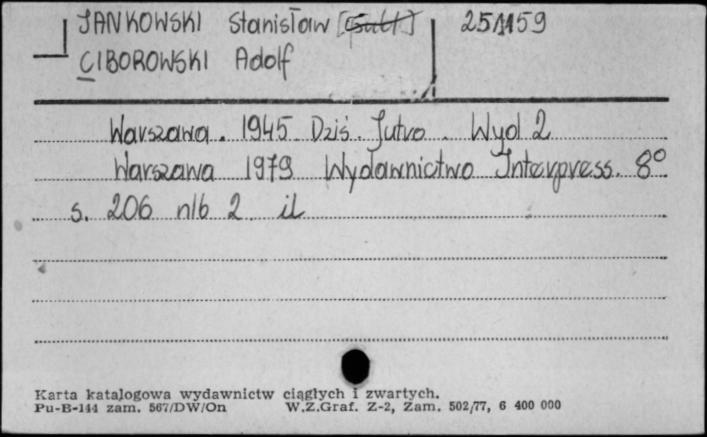 JANKOWSKI Stanisław 251159
CIBOROWSKI Adolf
Warszawa. 1945 Dziś. Jutro. Wyd 2
Warszawa 1979 Wydawnictwo Interpress. 8°
s. 206 nlb 2 il
Karta katalogowa wydawnictw ciągłych i zwartych.
Pu-B-144 zam. 567/DW/On W.Z.Graf. Z-2, Zam. 502/77, 6 400 000